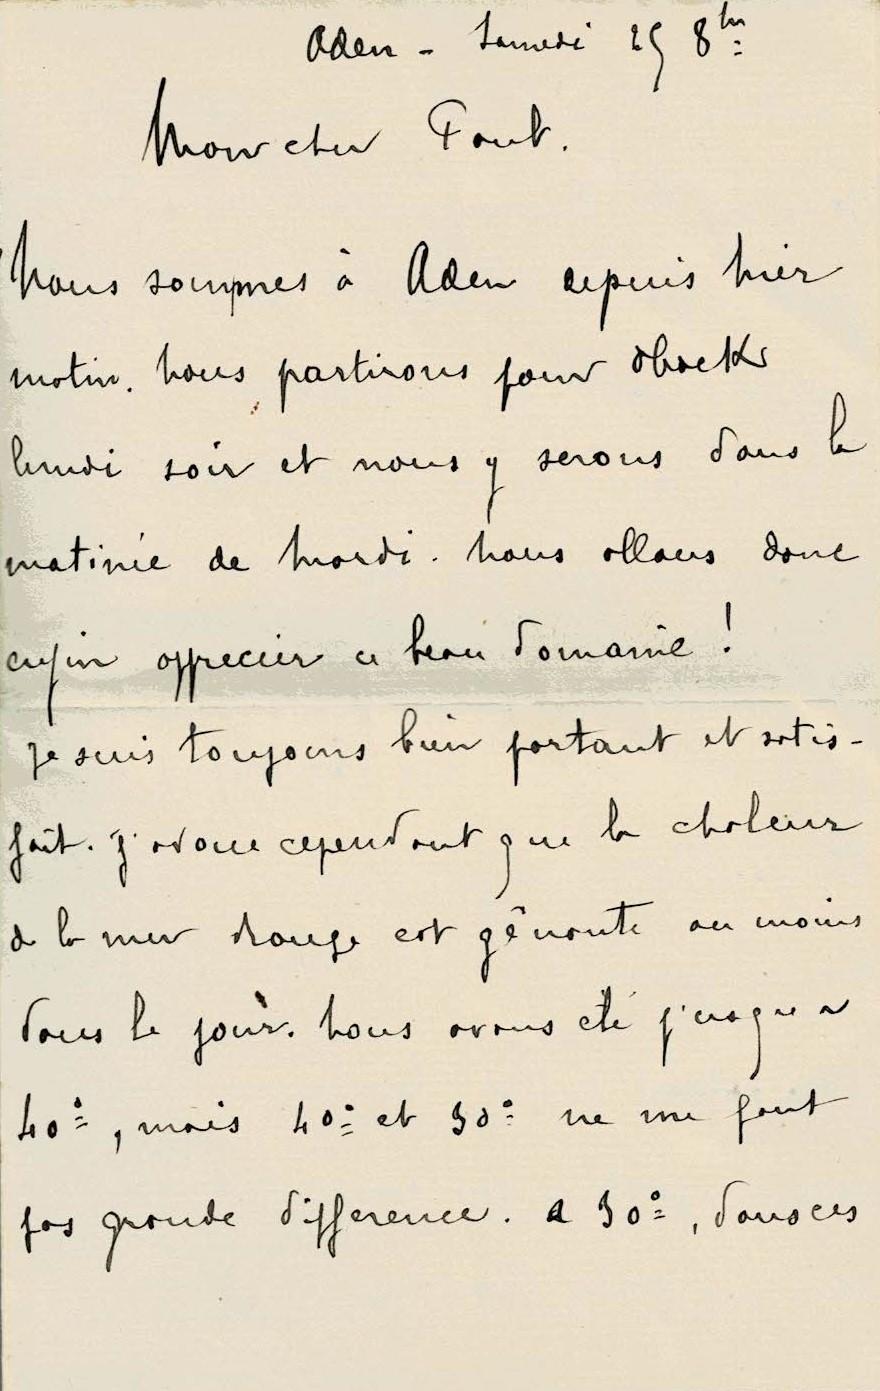 Aden - Samedi 25 8bre
Mon cher Paul.
Nous sommes à Aden depuis hier
matin. Nous partirons pour Obock
lundi soir et nous y serons dans la
matinée de Mardi. Nous allons donc
enfin apprecier ce beau domaine !
Je suis toujours bien portant et satis-
fait. J'avoue cependant que la chaleur
de la mer Rouge est gênante au moins
dans le jour. Nous avons été jusqu'a
40°, mais 40° et 30° ne me font
pas grande difference. A 30°, dans ces